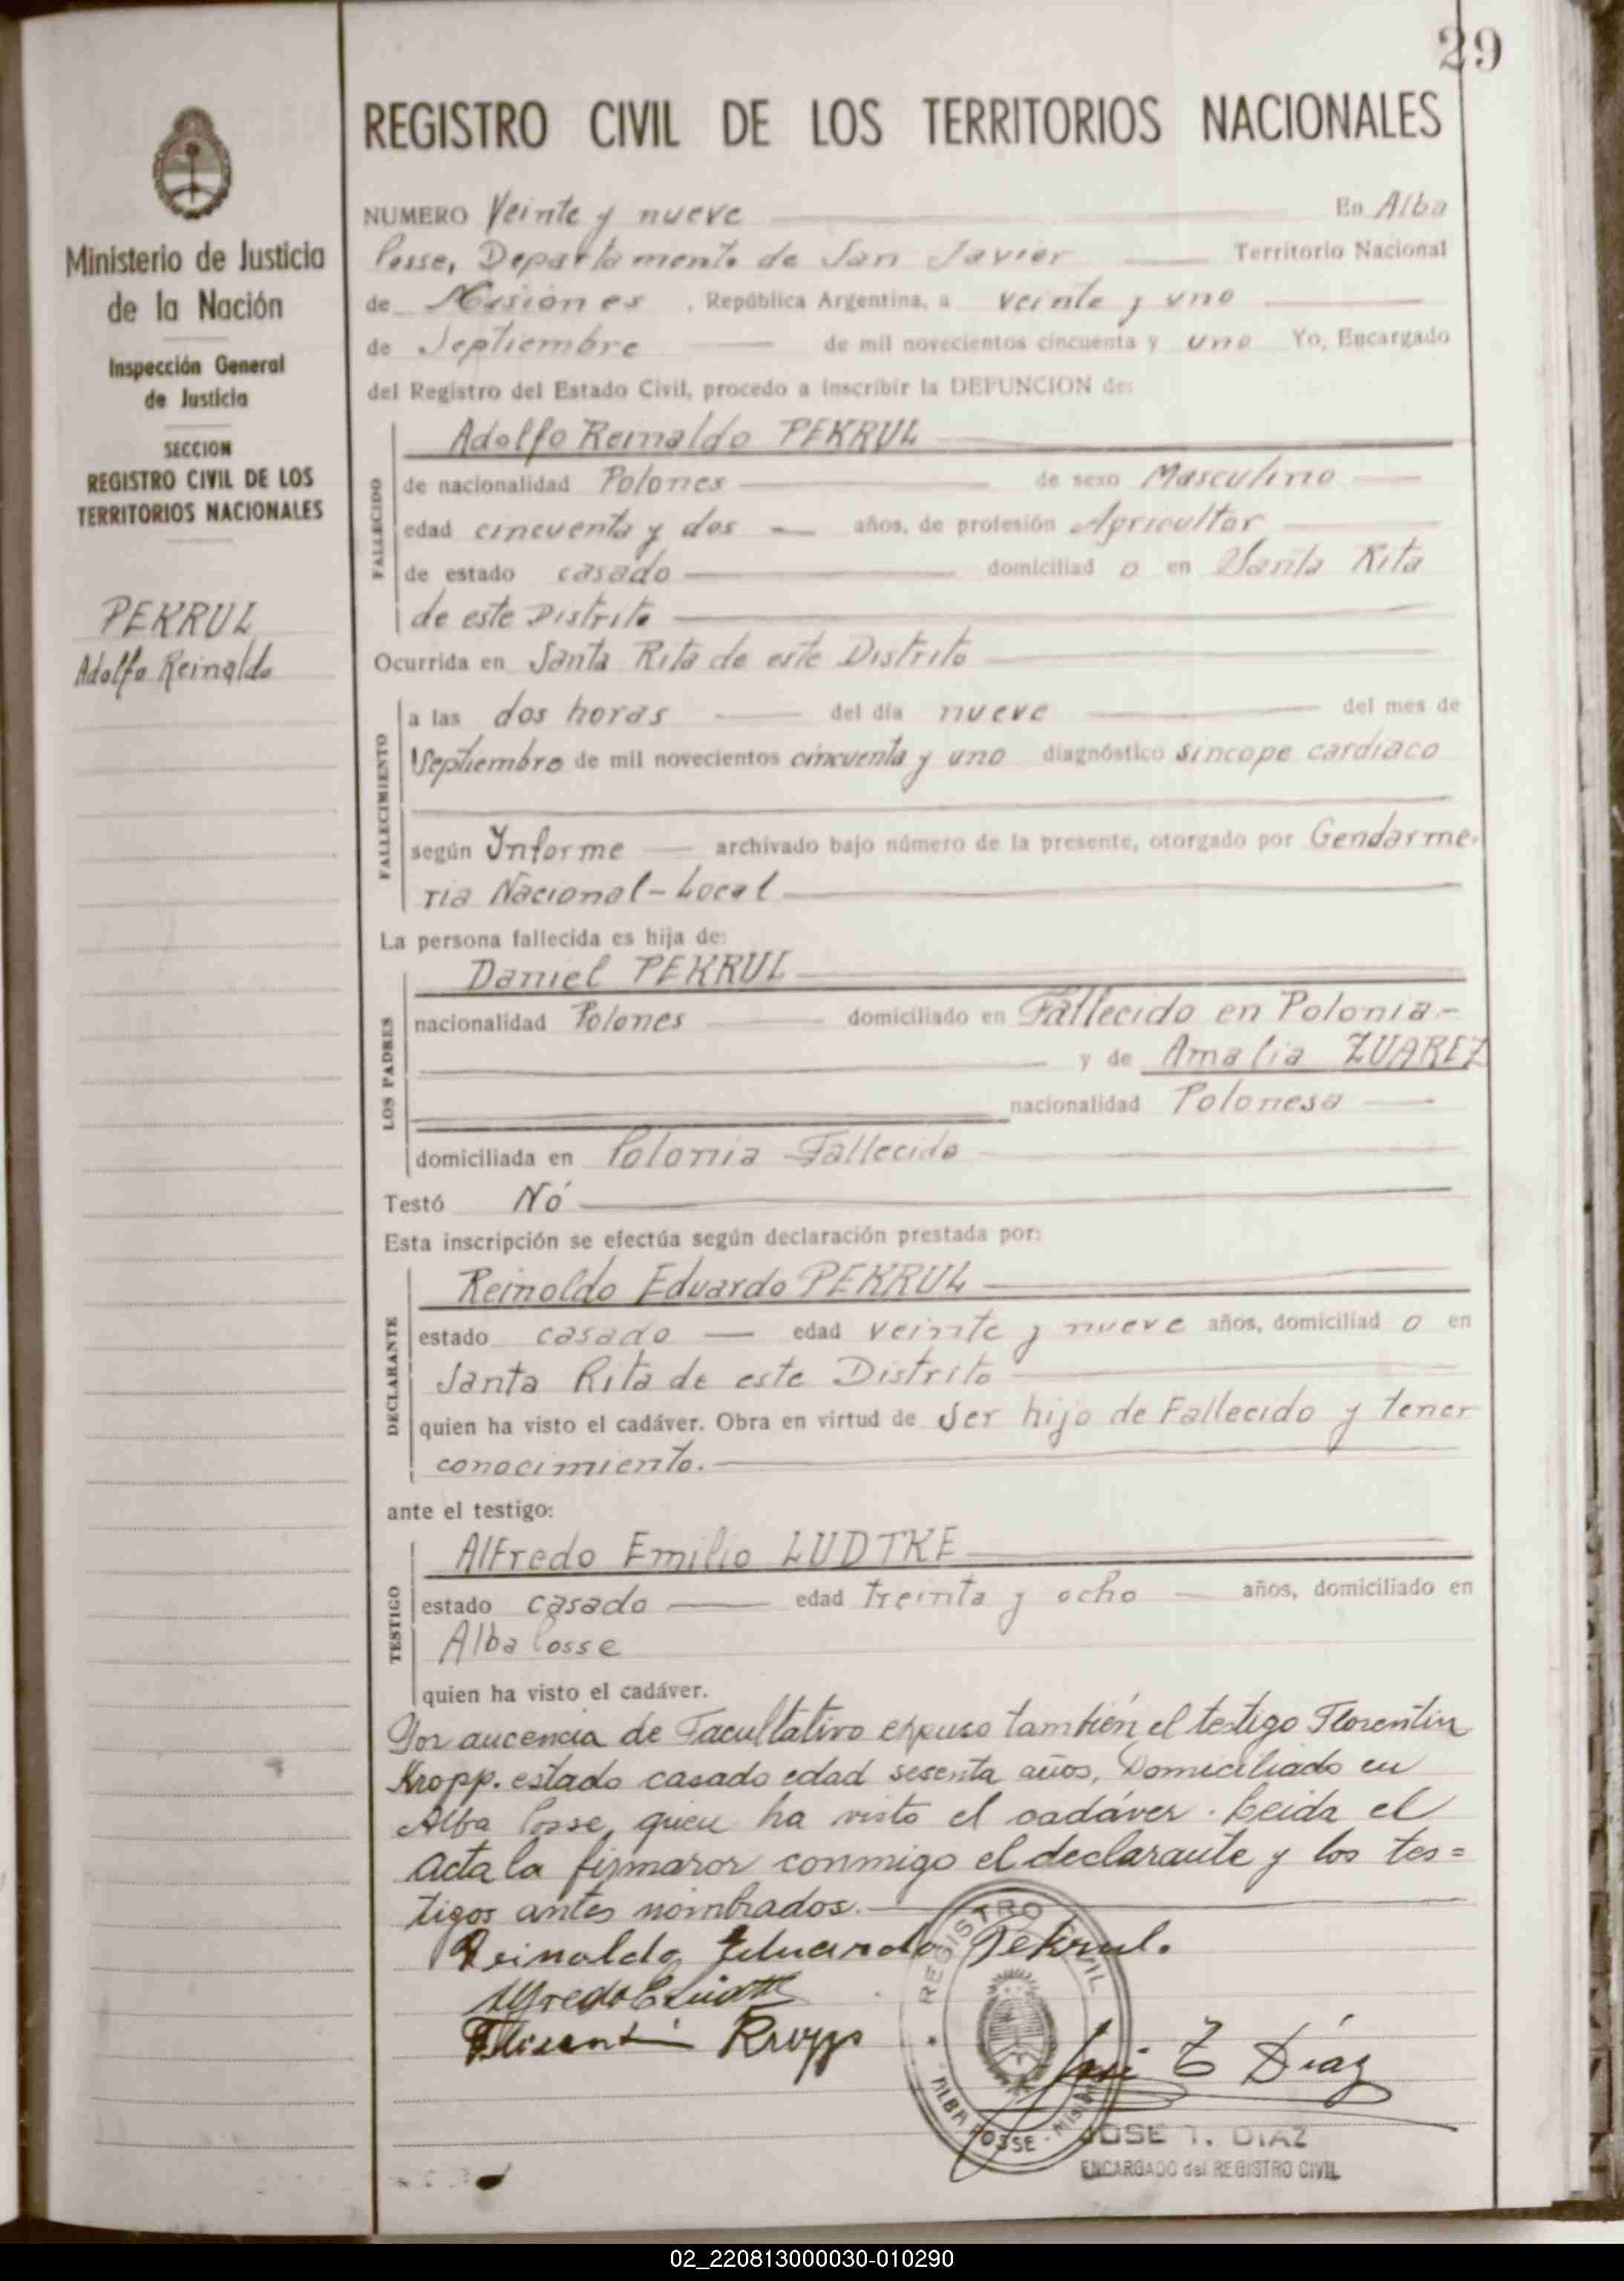 29
REGISTRO CIVIL DE LOS TERRITORIOS NACIONALES
Ministerio de Justicia
de la Nación
Inspección General
de Justicia
SECCION
REGISTRO CIVIL DE LOS
TERRITORIOS NACIONALES
PEKRUL
Adolfo Reinaldo
NUMERO Veinte y nueve En Alba
Posse, Departamento de San Javier Territorio Nacional
de Misiones , República Argentina, a veinte y uno
de Septiembre de mil novecientos cincuenta y uno Yo, Encargado
del Registro del Estado Civil, procedo a inscribir la DEFUNCION de:
FALLECIDO
Adolfo Reinaldo PEKRUL
de nacionalidad Polones de sexo Masculino
edad cincuenta y dos años, de profesión Agricultor
de estado casado domiciliad o en Santa Rita
de este Distrito
Ocurrida en Santa Rita de este Distrito
FALLECIMIENTO
a las dos horas del día nueve del mes de
Septiembre de mil novecientos cincuenta y uno diagnóstico sincope cardiaco
según Informe archivado bajo número de la presente, otorgado por Gendarme-
ria Nacional-Local
La persona fallecida es hija de:
LOS PADRES
Daniel PEKRUL
nacionalidad Polones domiciliado en Fallecido en Polonia-
y de Amalia ZUAREZ
nacionalidad Polonesa
domiciliada en Polonia Fallecida
Testó Nó
Esta inscripción se efectúa según declaración prestada por:
DECLARANTE
Reinoldo Eduardo PEKRUL
estado casado edad veinte y nueve años, domiciliad o en
Santa Rita de este Distrito
quien ha visto el cadáver. Obra en virtud de Ser hijo de Fallecido y tener
conocimiento.
ante el testigo:
TESTIGO
Alfredo Emilio LUDTKE
estado casado edad treinta y ocho años, domiciliado en
Alba Posse
quien ha visto el cadáver.
Por aucencia de Facultativo expuso también el testigo Florentin
Kropp. estado casado edad sesenta años, Domiciliado en
Alba Posse, quien ha visto el cadáver. Leida el
acta la firmaror conmigo el declarante y los tes=
tigos antes nombrados.
Reinaldo Eduardo Pekrul.
Florentin Kropp
REGISTRO CIVIL
ALBA POSSE - MISIONES
José T Díaz
JOSE T. DIAZ
ENCARGADO del REGISTRO CIVIL
02_220813000030-010290